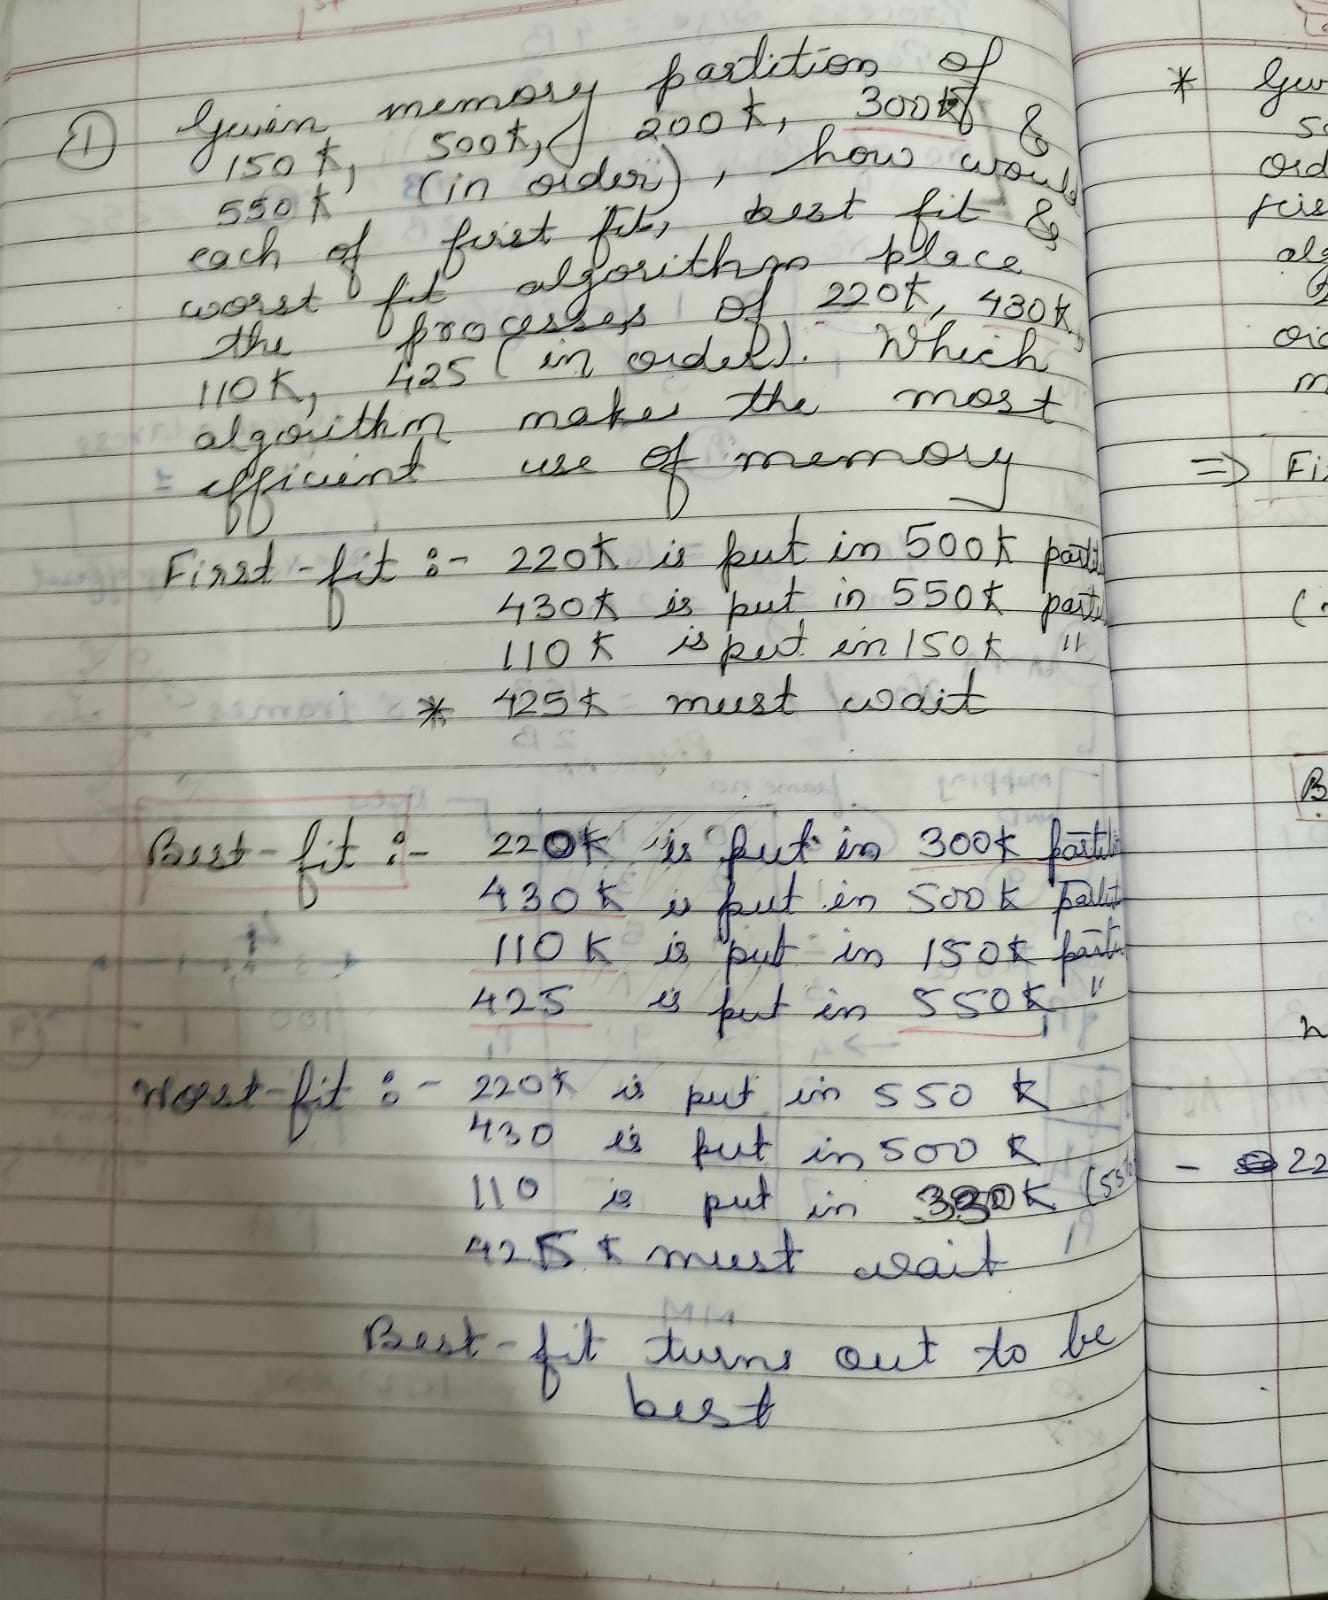 ① Given memory partition of
150K, 500K, 200K, 300K &
550K (in order), how would
each of first fit, best fit &
worst fit algorithm place
the processes of 220K, 430K,
110K, 425 (in order). Which
algorithm makes the most
efficient use of memory
First-fit :- 220K is put in 500K
430K is put in 550K
110K is put in 150K "
* 425K must wait
Best-fit :- 220K is put in 300K
430K is put in 500K
110K is put in 150K
425 is put in 550K "
Worst-fit :- 220K is put in 550 K
430 is put in 500 K
110 is put in
425 K must wait
Best-fit turns out to be
best
*
⇒
- 22